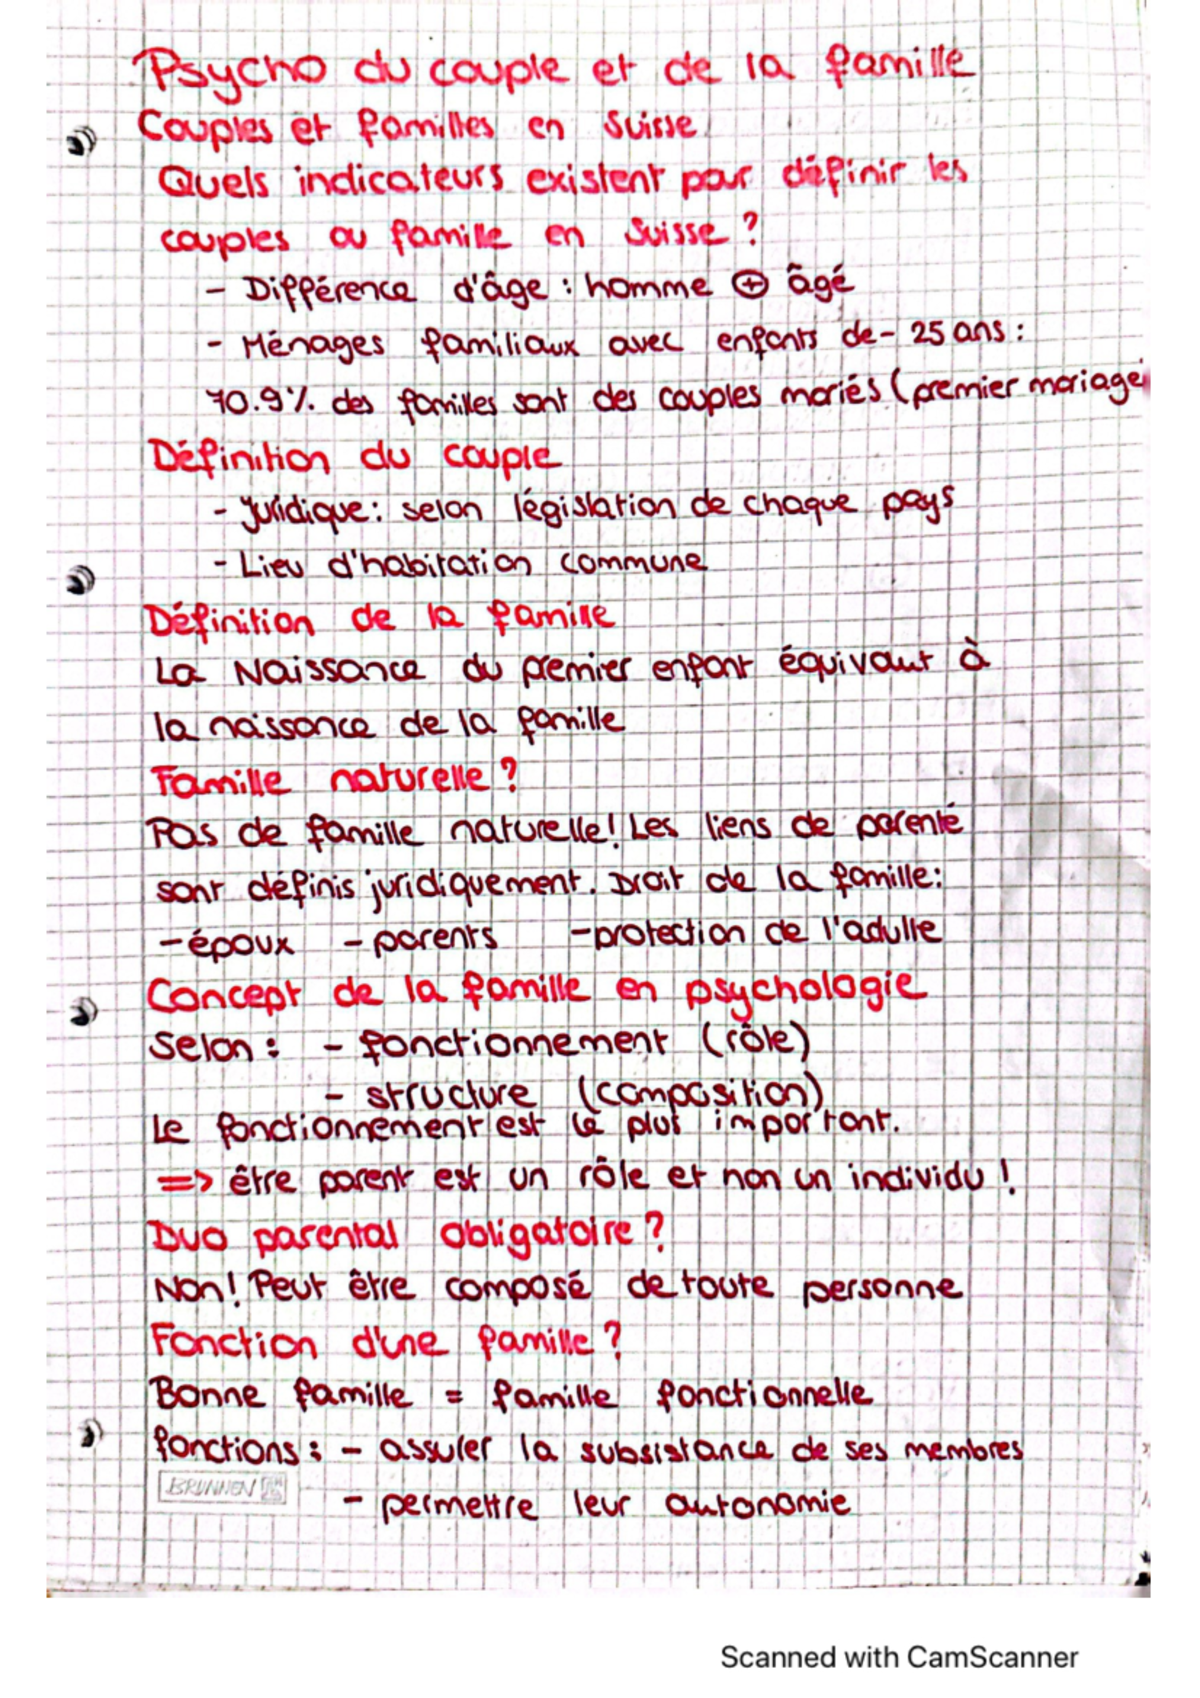 Psycho du couple et de la famille
Couples et familles en Suisse
Quels indicateurs existent pour définir les
couples ou famille en Suisse ?
- Différence d'âge : homme ⊕ âgé
- Ménages familiaux avec enfants de - 25 ans :
70.9% des familles sont des couples mariés (premier mariage
Définition du couple
- juridique : selon législation de chaque pays
- Lieu d'habitation commune
Définition de la famille
La Naissance du premier enfant équivaut à
la naissance de la famille
Famille naturelle ?
Pas de famille naturelle! Les liens de parenté
sont définis juridiquement. Droit de la famille:
- époux - parents - protection de l'adulte
Concept de la famille en psychologie
Selon : - fonctionnement (rôle)
- structure (composition)
Le fonctionnement est le plus important.
=> être parent est un rôle et non un individu !
Duo parental obligatoire ?
Non! Peut être composé de toute personne
Fonction d'une famille ?
Bonne famille = famille fonctionnelle
fonctions : - assurer la subsistance de ses membres
BRUNNEN
- permettre leur autonomie
Scanned with CamScanner